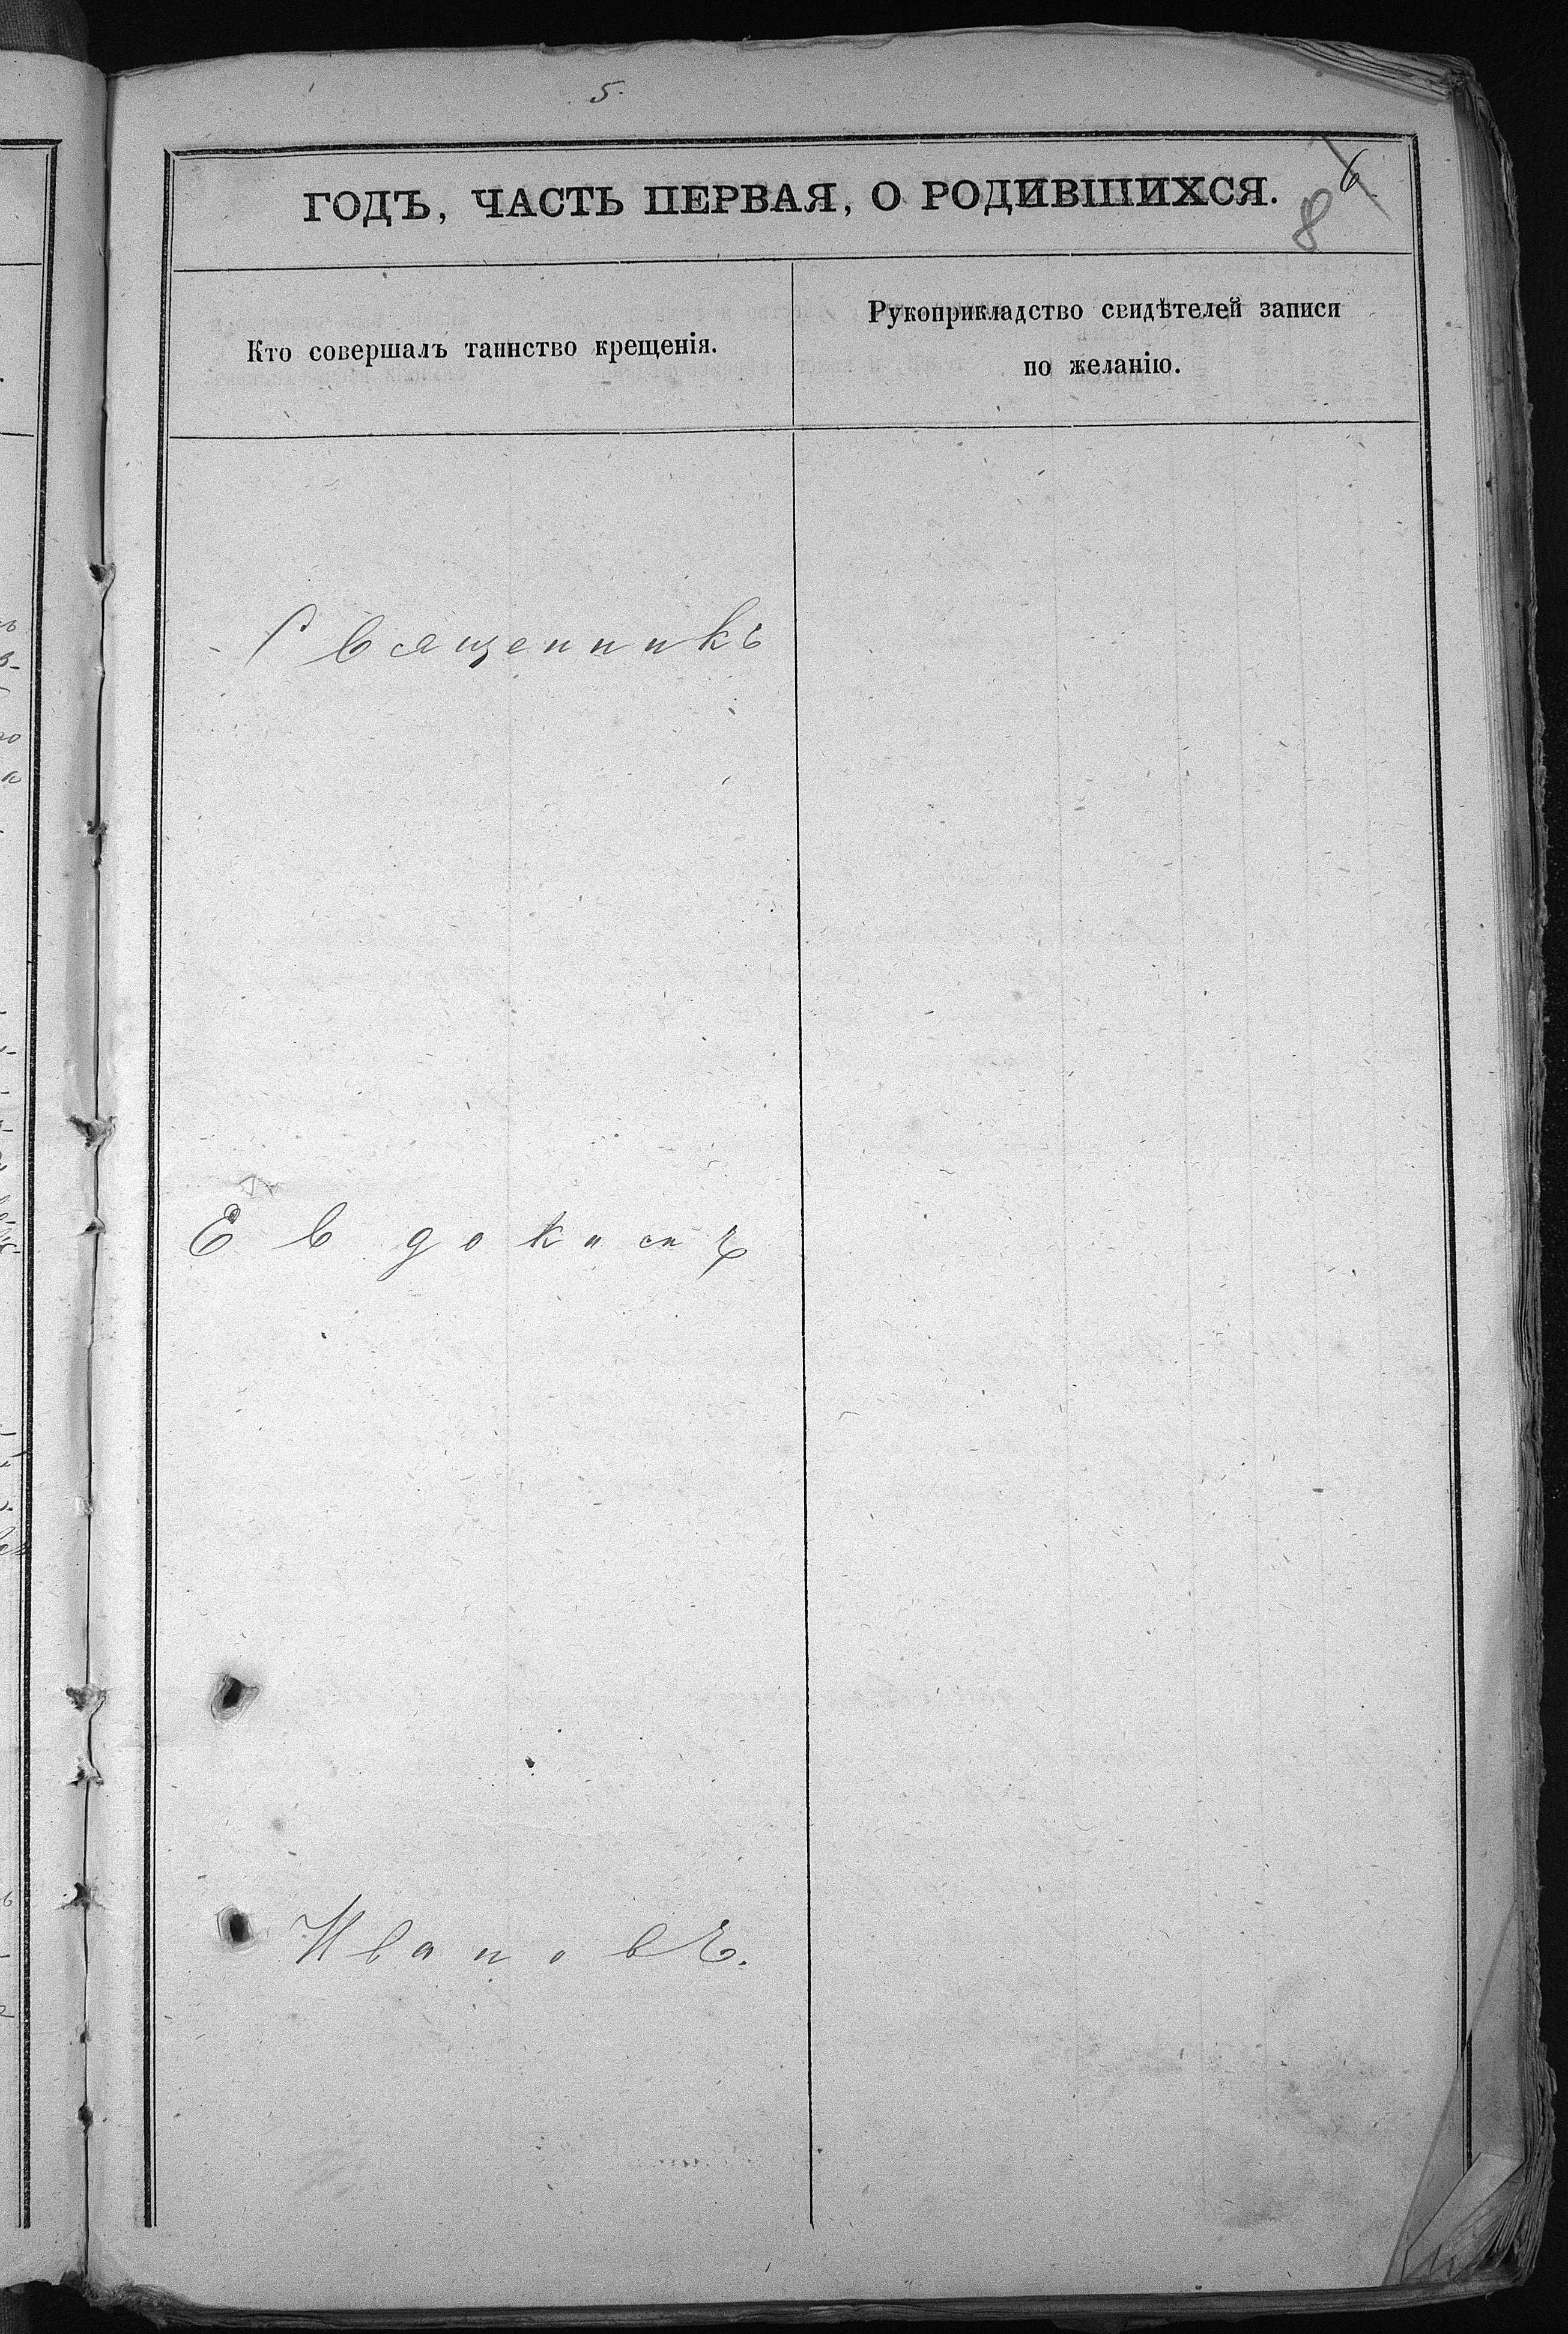 5.
ГОДЪ, ЧАСТЬ ПЕРВАЯ, О РОДИВШИХСЯ.
6
8
Кто совершалъ таинство крещенія.
Рукоприкладство свидѣтелей записи
по желанію.
Священникъ
Евдокимъ
Ивановъ.